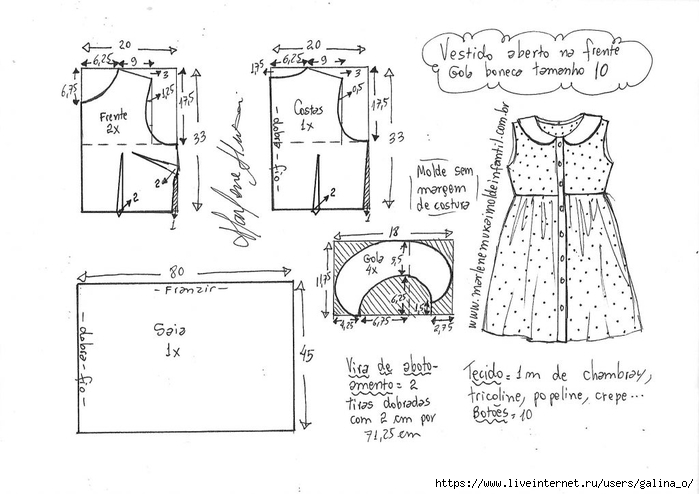 Vestido aberto na frente
Gola boneca tamanho 10
20
6,25
9
3
6,75
1,25
17,5
Frente
2x
33
2
2
1
20
6,25
9
1,75
3
0,5
17,5
Costas
1x
- dobra - fio -
33
1
Molde sem
margem
de costura
www.marlenemukaimoldeinfantil.com.br
18
Gola
4x
3,5
11,75
6,25
1,5
4,25
6,75
2,75
80
- Franzir -
Saia
1x
- dobra - fio -
45
Vira de aboto-
amento = 2
tiras dobradas
com 2 cm por
71,25 cm
Tecido = 1m de chambray,
tricoline, popeline, crepe...
Botões = 10
https://www.liveinternet.ru/users/galina_o/